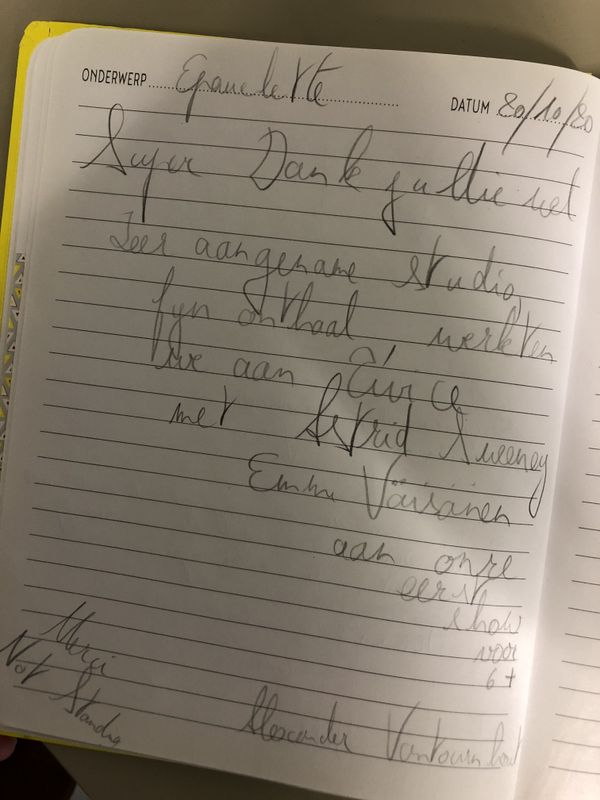 ONDERWERP Epaulette DATUM 20/10/20
Super Dank jullie wel
Zeer aangename studio,
fijn onthaal werkten
we aan
met Astrid Sweeney
Emmi Väisänen
aan onze
eerst
show
voor
6+
Merci
Not Standing
Alexander Vantournhout